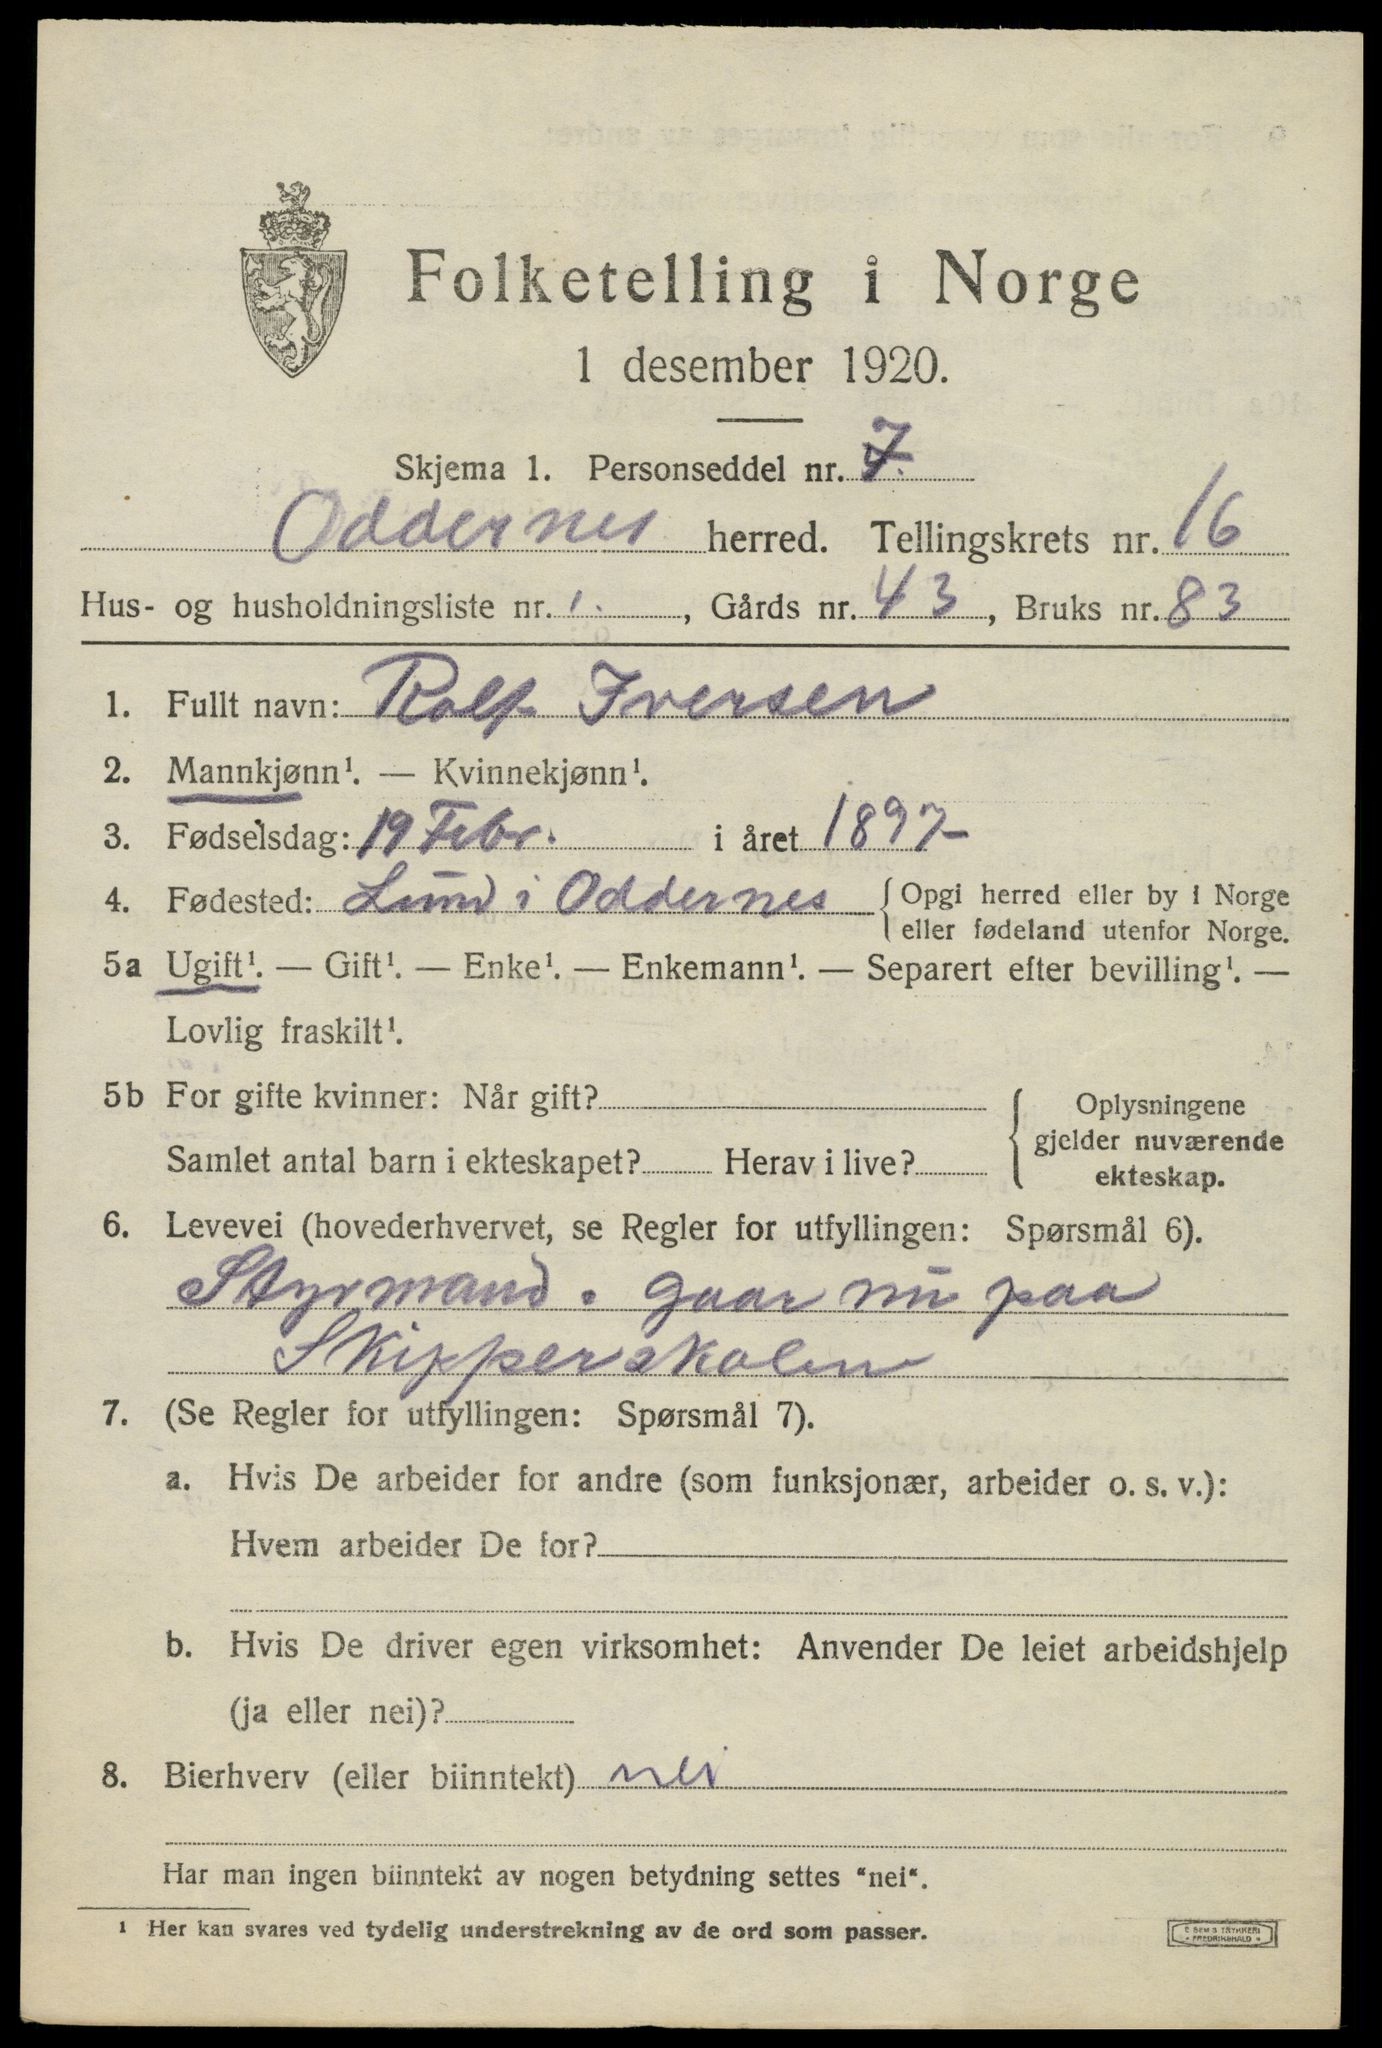 Folketelling i Norge
1 desember 1920.
Skjema 1. Personseddel nr. 7.
Oddernes herred. Tellingskrets nr. 16
Hus- og husholdningsliste nr. 1. , Gårds nr. 43 , Bruks nr. 83
1. Fullt navn: Rolf Iversen
2. Mannkjønn¹. — Kvinnekjønn¹.
3. Fødselsdag: 19 Febr. i året 1897
4. Fødested: Lund i Oddernes { Opgi herred eller by i Norge
eller fødeland utenfor Norge.
5a Ugift¹. — Gift¹. — Enke¹. — Enkemann¹. — Separert efter bevilling¹. —
Lovlig fraskilt¹.
5b For gifte kvinner: Når gift?
Samlet antal barn i ekteskapet? Herav i live?
{ Oplysningene
gjelder nuværende
ekteskap.
6. Levevei (hovederhvervet, se Regler for utfyllingen: Spørsmål 6).
Styrmand. gaar nu paa
Skipperskolen
7. (Se Regler for utfyllingen: Spørsmål 7).
a. Hvis De arbeider for andre (som funksjonær, arbeider o. s. v.):
Hvem arbeider De for?
b. Hvis De driver egen virksomhet: Anvender De leiet arbeidshjelp
(ja eller nei)?
8. Bierhverv (eller biinntekt) nei
Har man ingen biinntekt av nogen betydning settes "nei".
¹ Her kan svares ved tydelig understrekning av de ord som passer.
E SEM'S TRYKKERI
FREDRIKSHALD